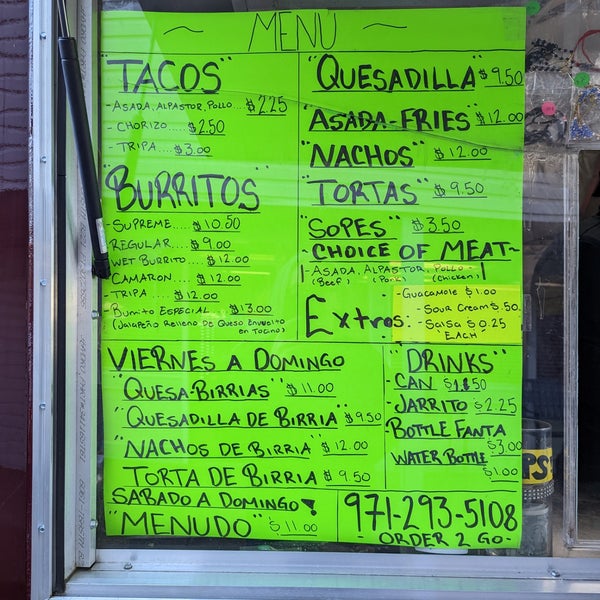 ~ MENÚ ~
"TACOS"
- ASADA, ALPASTOR, POLLO... $2.25
- CHORIZO.... $2.50
- TRIPA... $3.00
"BURRITOS"
- SUPREME.... $10.50
REGULAR.... $9.00
WET BURRITO... $12.00
CAMARON.... $12.00
- TRIPA.... $12.00
- Burrito ESPECIAL ... $13.00
(JALAPEÑO RELLENO DE QUESO ENVUELTO
EN TOCINO)
"QUESADILLA" $9.50
"ASADA-FRIES" $12.00
"NACHOS" $12.00
"TORTAS" $9.50
"SOPES" $3.50
~CHOICE OF MEAT~
- ASADA, ALPASTOR, POLLO -
(Beef) (Pork) (Chicken)
Extras:
- GUACAMOLE $1.00
- SOUR CREAM $.50
- SALSA $0.25
EACH
VIERNES A DOMINGO
"QUESA-BIRRIAS" $11.00
"QUESADILLA DE BIRRIA" $9.50
"NACHOS DE BIRRIA" $12.00
TORTA DE BIRRIA $9.50
SABADO A DOMINGO!
"MENUDO" $11.00
"DRINKS"
- CAN $1.50
- JARRITO $2.25
BOTTLE FANTA
$3.00
WATER BOTTLE
$1.00
971-293-5108
- ORDER 2 GO -